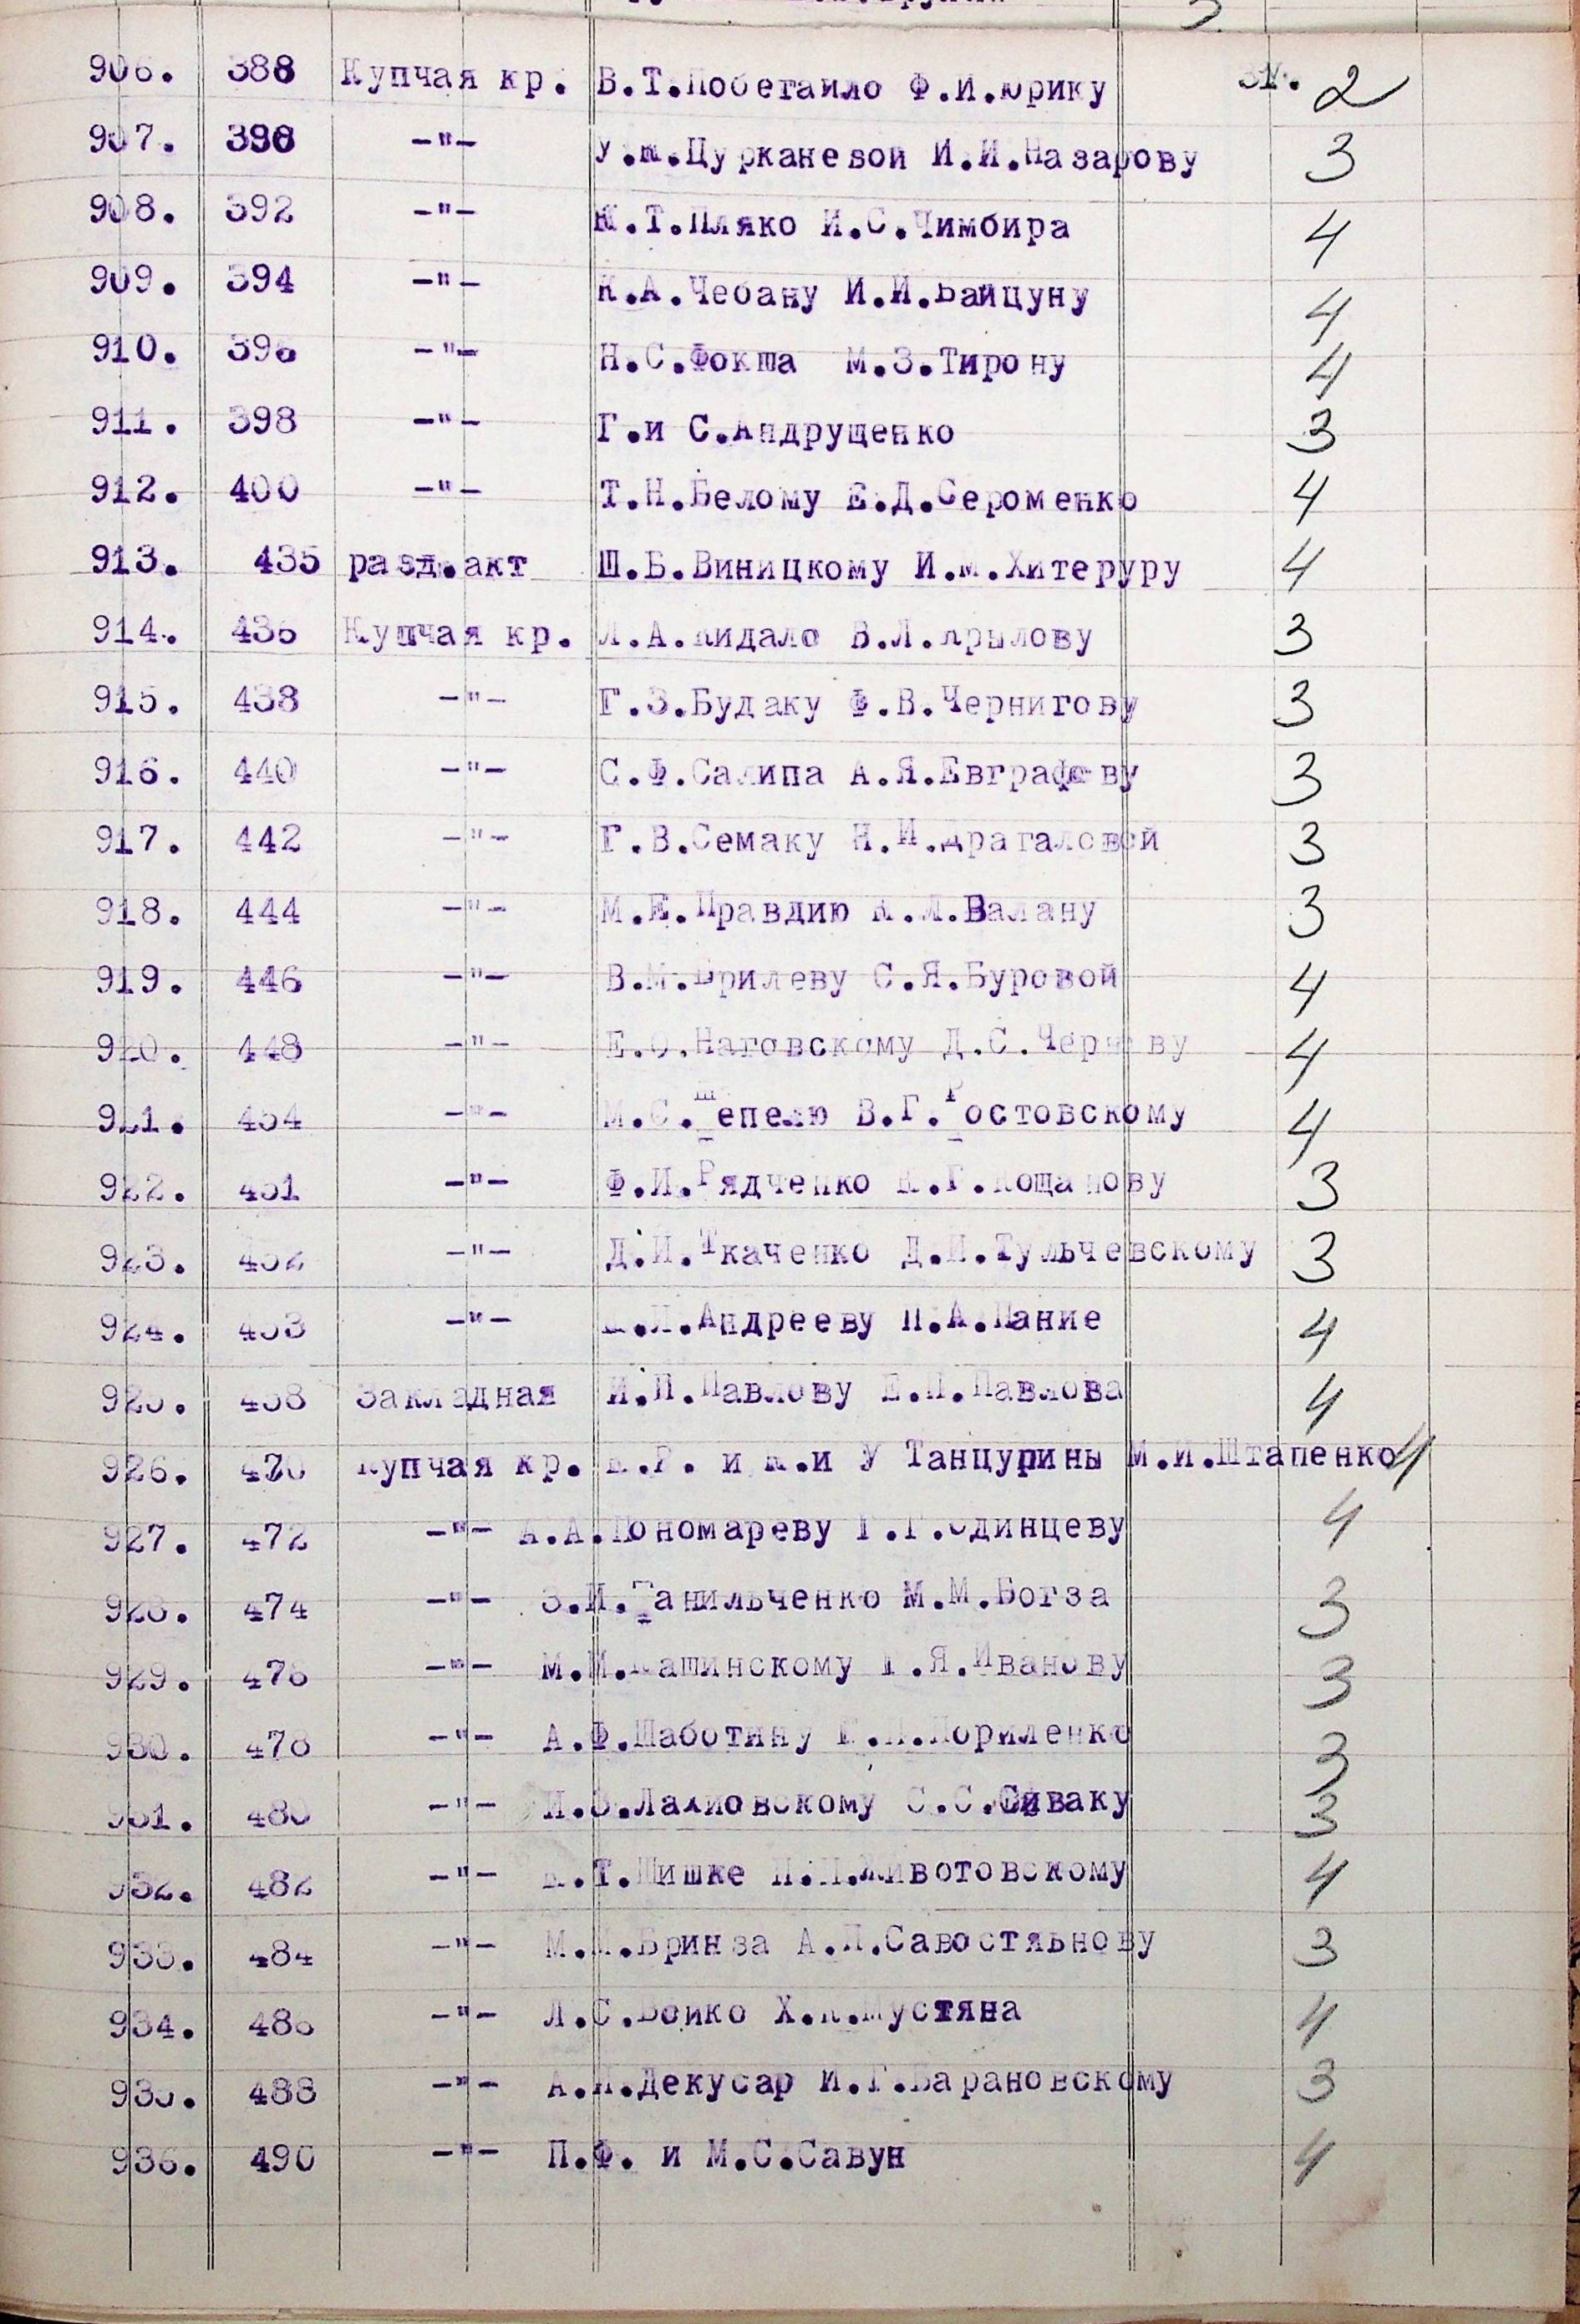 906. 388 Купчая кр. В.Т.Побетайло Ф.И.Юрику 2
907. 390 -"- У.М.Цурканевой И.И.Назарову 3
908. 392 -"- Ю.Т.Пляко И.С.Чимбира 4
909. 394 -"- К.А.Чебану И.И.Байцуну 4
910. 396 -"- Н.С.Фокша М.З.Тирону 4
911. 398 -"- Г.и С.Андрущенко 3
912. 400 -"- Т.Н.Белому Е.Д.Сероменко 4
913. 435 разд.акт Ш.Б.Виницкому И.М.Хитеруру 4
914. 436 Купчая кр. Л.А.Кидало В.Л.Крылову 3
915. 438 -"- Г.З.Будаку Ф.В.Чернигову 3
916. 440 -"- С.Ф.Салипа А.Я.Евграфову 3
917. 442 -"- Г.В.Семаку Н.И.Драгаловой 3
918. 444 -"- М.Е.Правдию Валану 3
919. 446 -"- В.М.Брилеву С.Я.Буровой 4
920. 448 -"- Е.О.Наговскому Д.С. 4
921. 454 -"- М.С.Шепелю В.Г.Ростовскому 4
922. 451 -"- Ф.И.Рядченко 3
923. 452 -"- Д.И.Ткаченко Тульчевскому 3
924. 453 -"- Андрееву П.А.Пание 4
925. 458 Закладная И.П.Павлову Павлова 4
926. 470 Купчая кр. и У Танцурины М.И.Штапенко 4
927. 472 -"- А.А.Пономареву Г.Г.Одинцеву 4
928. 474 -"- З.И. М.М.Богза 3
929. 476 -"- М.М.Кашинскому Г.Я.Иванову 3
930. 478 -"- А.Ф.Шаботину 3
931. 480 -"- С.С.Сиваку 3
932. 482 -"- Шишке Животовскому 4
933. 484 -"- Бринза Савостяьнову 3
934. 486 -"- Л.С.Бойко Мустяна 4
935. 488 -"- Декусар И.Г.Барановскому 3
936. 490 -"- П.Ф. и М.С.Савун 4